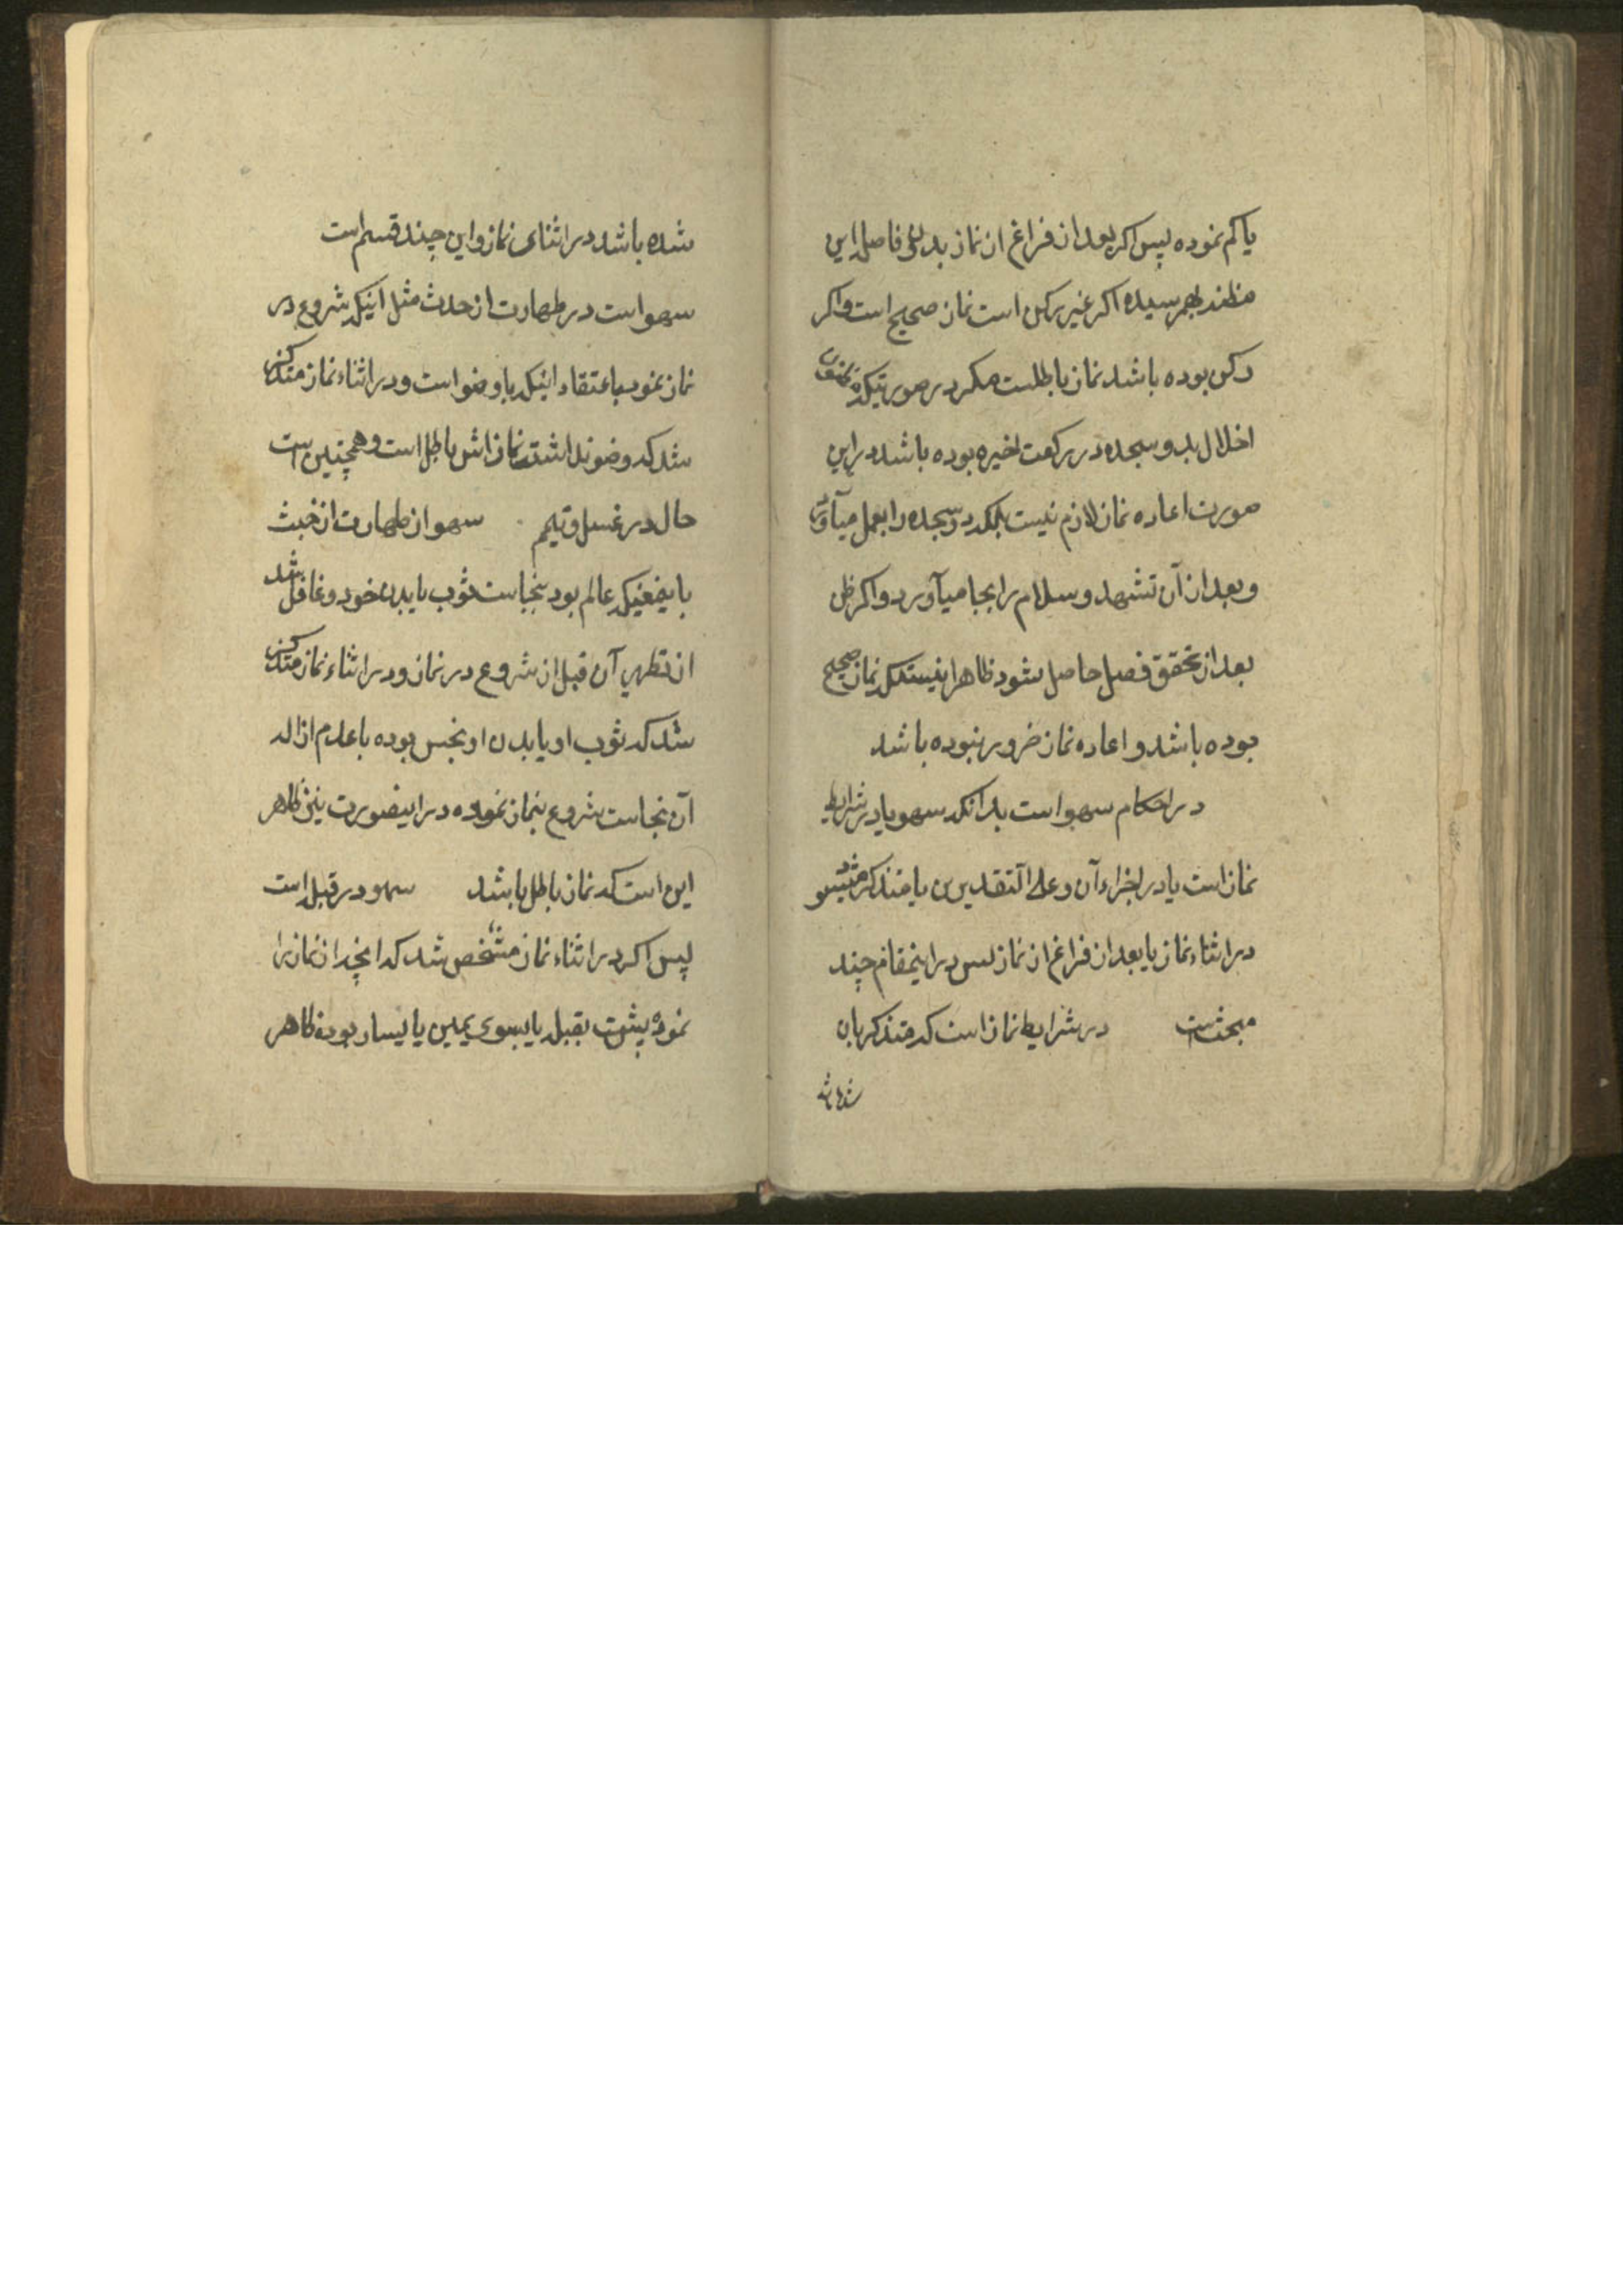 یا کم نموده پس اکر بعد از فراغ از نماز بدون فاصله این
مظنه بهمرسیده اکر غیر رکن است نماز صحیح است و اکر
رکن بوده باشد نماز باطلست مکر در صورتیکه
اخلال بدو سجده در رکعت اخیره بوده باشد در این
صورت اعاده نماز لازم نیست بلکه دو سجده را بعمل میآورد
و بعد از آن تشهد و سلام را بجا میآورد و اکر ظن
بعد از تحقق فصل حاصل شود ظاهرا اینستکه نماز صحیح
بوده باشد و اعاده نماز ضرور نبوده باشد
در احکام سهو است بدانکه سهو یا در شرایط
نماز است یا در اجزاء آن و علی التقدیرین یا متذکر میشود
در اثناء نماز یا بعد از فراغ از نماز پس در اینمقام چند
مبحث است در شرایط نماز است که متذکر بان
شده باشد
شده باشد در اثنای نماز و این چند قسم است
سهو است در طهارت از حدث مثل اینکه شروع در
نماز نمود باعتقاد اینکه با وضو است و در اثناء نماز متذکر
شد که وضو نداشته نمازش باطل است و همچنین است
حال در غسل و تیمم سهو از طهارت از خبث
باینمعنیکه عالم بود بنجاست ثوب یا بدن خود و غافل شد
از تطهیر آن قبل از شروع در نماز و در اثناء نماز متذکر
شد که ثوب او یا بدن او نجس بوده با عدم ازاله
آن نجاست شروع بنماز نموده در اینصورت نیز ظاهر
این است که نماز باطل باشد سهو در قبله است
پس اکر در اثناء نماز مشخص شد که آنچه از نماز را
نموده پشت بقبله یا بسوی یمین یا یسار بوده ظاهر